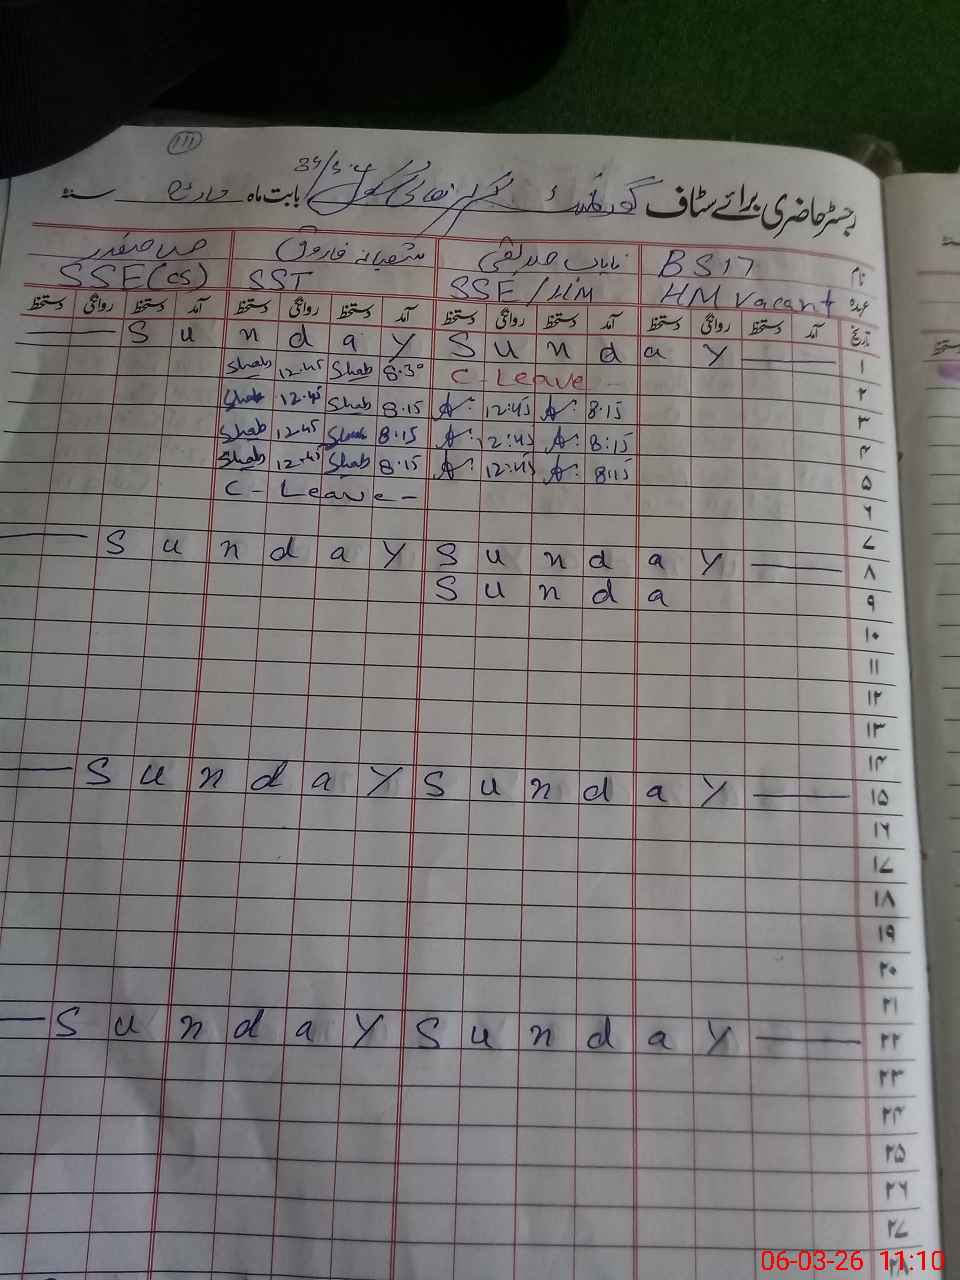 111
رجسٹر حاضری برائے سٹاف گورنمنٹ گرلز ہائی سکول 34/5.4 بابت ماہ مارچ سنہ
نام BS17 نایاب صدیقی شبانہ فاروق
عہدہ HM vacant SSE/HM SST SSE(CS)
تاریخ آمد دستخط روانگی دستخط آمد دستخط روانگی دستخط آمد دستخط روانگی دستخط آمد دستخط روانگی دستخط
۱ Sunday Sunday
۲ Shab 12.45 Shab 8.30 C-Leave
۳ Shab 12.45 Shab 8.15 A. 12:45 A. 8.15
۴ Shab 12.45 Shab 8.15 A. 12:45 A. 8:15
۵ Shab 12.45 Shab 8.15 A. 12:45 A. 8:15
۶ C-Leave-
۷
۸ Sunday Sunday
۹ Sunda
۱۰
۱۱
۱۲
۱۳
۱۴
۱۵ Sunday Sunday
۱۶
۱۷
۱۸
۱۹
۲۰
۲۱
۲۲ Sunday Sunday
۲۳
۲۴
۲۵
۲۶
۲۷
۲۸
06-03-26 11:10